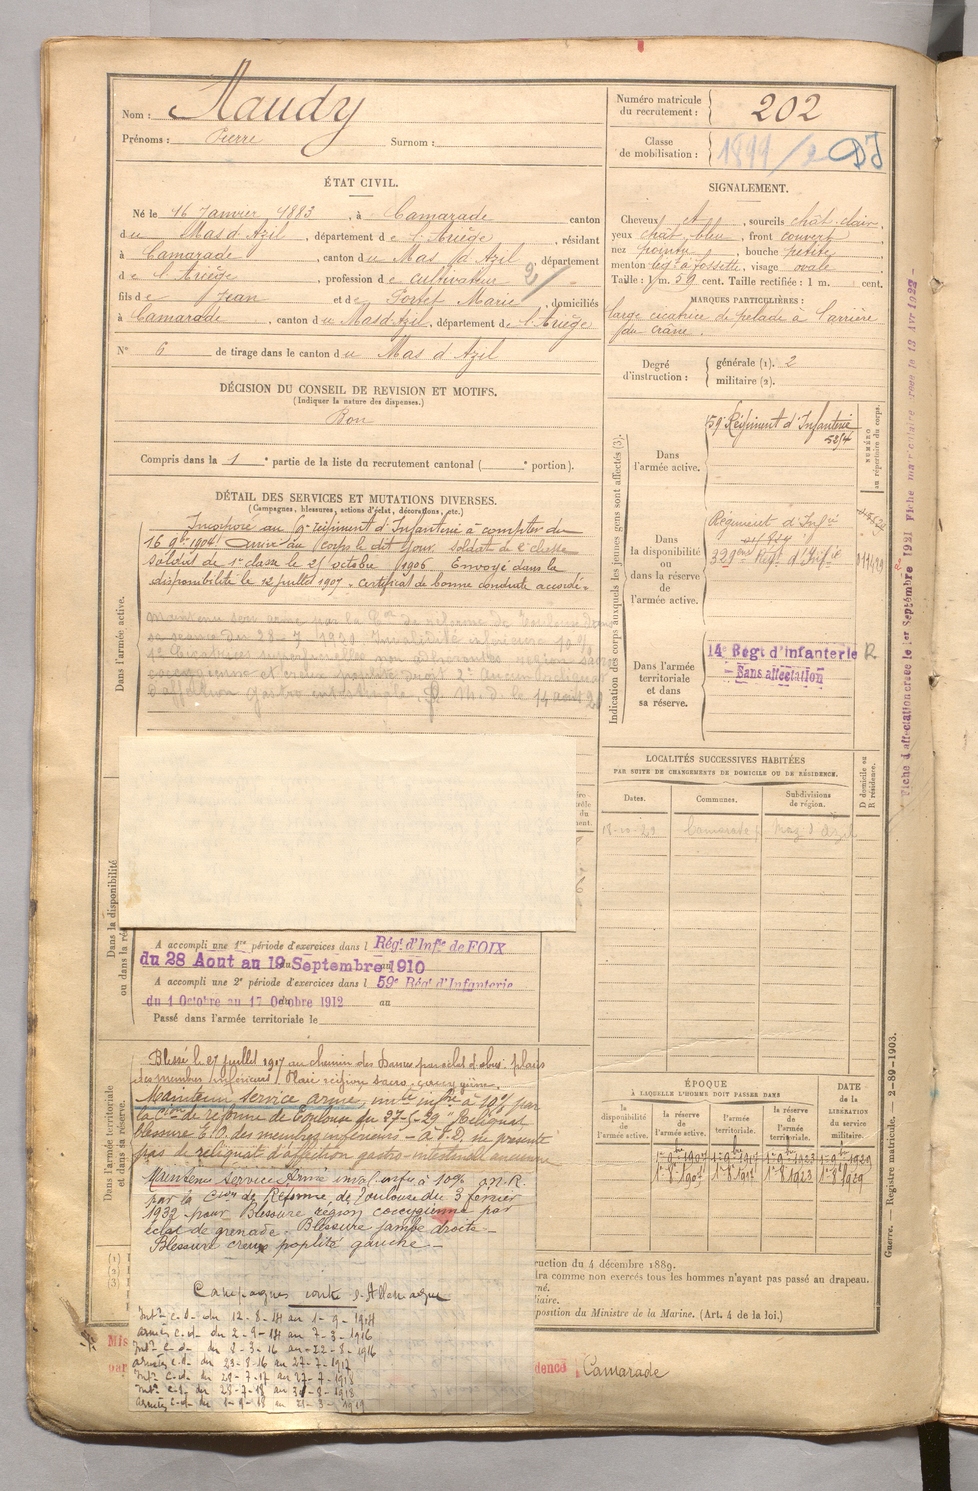 Nom : Maudy
Prénoms : Pierre Surnom :
Numéro matricule du recrutement : 202
Classe de mobilisation : 1899/2 DJ
ÉTAT CIVIL.
Né le 16 Janvier 1883, à Camarade canton
du Mas d'Azil, département de l'Ariège, résidant
à Camarade, canton du Mas d'Azil, département
de l'Ariège, profession de cultivateur 2/
fils de Jean et de Marie, domiciliés
à Camarade, canton du Mas d'Azil, département de l'Ariège
N° 6 de tirage dans le canton du Mas d'Azil
SIGNALEMENT.
Cheveux et, sourcils chat. clair
yeux chat. bleu, front couvert
nez pointu, bouche petite
menton à fossette, visage ovale
Taille : 1 m. 59 cent. Taille rectifiée : 1 m. cent.
MARQUES PARTICULIÈRES :
large cicatrice de pelade à l'arrière
du crâne.
Degré d'instruction : générale (1). 2
militaire (2).
DÉCISION DU CONSEIL DE REVISION ET MOTIFS.
(Indiquer la nature des dispenses.)
Bon
Compris dans la 1e partie de la liste du recrutement cantonal ( e portion).
DÉTAIL DES SERVICES ET MUTATIONS DIVERSES.
(Campagnes, blessures, actions d'éclat, décorations, etc.)
Dans l'armée active.
Incorporé au régiment d'Infanterie à compter du
16 9bre 1904 Arrivé au corps le dit jour. soldat de 2e classe
soldat de 1e classe le 21 octobre 1906. Envoyé dans la
disponibilité le 12 juillet 1907. Certificat de bonne conduite accordé.
maintenu serv. armé par la Con de réforme de Toulouse dans
sa séance du 28-7 Invalidité inférieure 10 %
1° Cicatrices superficielles non adhérentes région sacro
coccygienne et creux poplité droit 2° aucun reliquat
d'affection gastro intestinale. M. d. le 14 août
Indication des corps auxquels les jeunes gens sont affectés (3).
NUMÉRO au répertoire du corps.
Dans l'armée active.
59e Régiment d'Infanterie
Dans la disponibilité ou dans la réserve de l'armée active.
Régiment d'Infrie
329eme Régt d'Infie
Dans l'armée territoriale et dans sa réserve.
14e Régt d'Infanterie R
Sans affectation
Fiche d'affectation créée le 1er Septembre 1921 Fiche matriculaire créée le 13 Avr 1922
LOCALITÉS SUCCESSIVES HABITÉES
PAR SUITE DE CHANGEMENTS DE DOMICILE OU DE RÉSIDENCE.
Dates. Communes. Subdivisions de région. D domicile ou R résidence.
Camarade Mas d'Azil
Dans la disponibilité
ou dans la ré
A accompli une 1re période d'exercices dans l Régt d'Infie de FOIX
du 28 Aout au 19 Septembre 1910
A accompli une 2e période d'exercices dans l 59e Régt d'Infanterie
du 1 Octobre au 17 Octobre 1912 au
Passé dans l'armée territoriale le
Dans l'armée territoriale et dans sa réserve.
Blessé le 27 juillet 1917 au chemin des Dames par éclat d'obus. plaies
des membres inférieurs. Plaie région sacro coccygienne.
Maintenu service armé, invté infre à 10% par
la Con de réforme de Toulouse du 27-5-29 " Reliquat
blessure E.O. des membres inférieurs - ne présente
pas de reliquat d'affection gastro-intestinale ancienne
Maintenu Service Armé inval. infre à 10% n.R.
par la Con de Réforme de Toulouse du 3 février
1932 pour Blessure région coccygienne par
éclat de grenade. Blessure jambe droite -
Blessure creux poplité gauche -
Campagnes contre l'Allemagne
Intr c.d. du 12-8-14 au 1-9-1914
armées c.d. du 2-9-14 au 7-3-1916
Intr c.d. du 8-3-16 au 22-8-1916
armées c.d. du 23-8-16 au 27-7-1917
Intr c.d. du 28-7-17 au 27-7-1918
Intr c.s. du 28-7-18 au 31-8-1918
armées c.d. du 1-9-18 au 21-3-1919
ÉPOQUE
À LAQUELLE L'HOMME DOIT PASSER DANS
la disponibilité de l'armée active. la réserve de l'armée active. l'armée territoriale. la réserve de l'armée territoriale.
DATE de la LIBÉRATION du service militaire.
1er 9bre 1907 1er 9bre 1917 1er 9bre 1923 1er 9bre 1929
1er 8 1907 1er 8 1917 1er 8 1923 1er 8 1929
(1)
(2)
(3)
ruction du 4 décembre 1889.
dra comme non exercés tous les hommes n'ayant pas passé au drapeau.
né.
liaire.
position du Ministre de la Marine. (Art. 4 de la loi.)
Mis
par
dence Camarade
Guerre. — Registre matricule. — 2-89-1903.